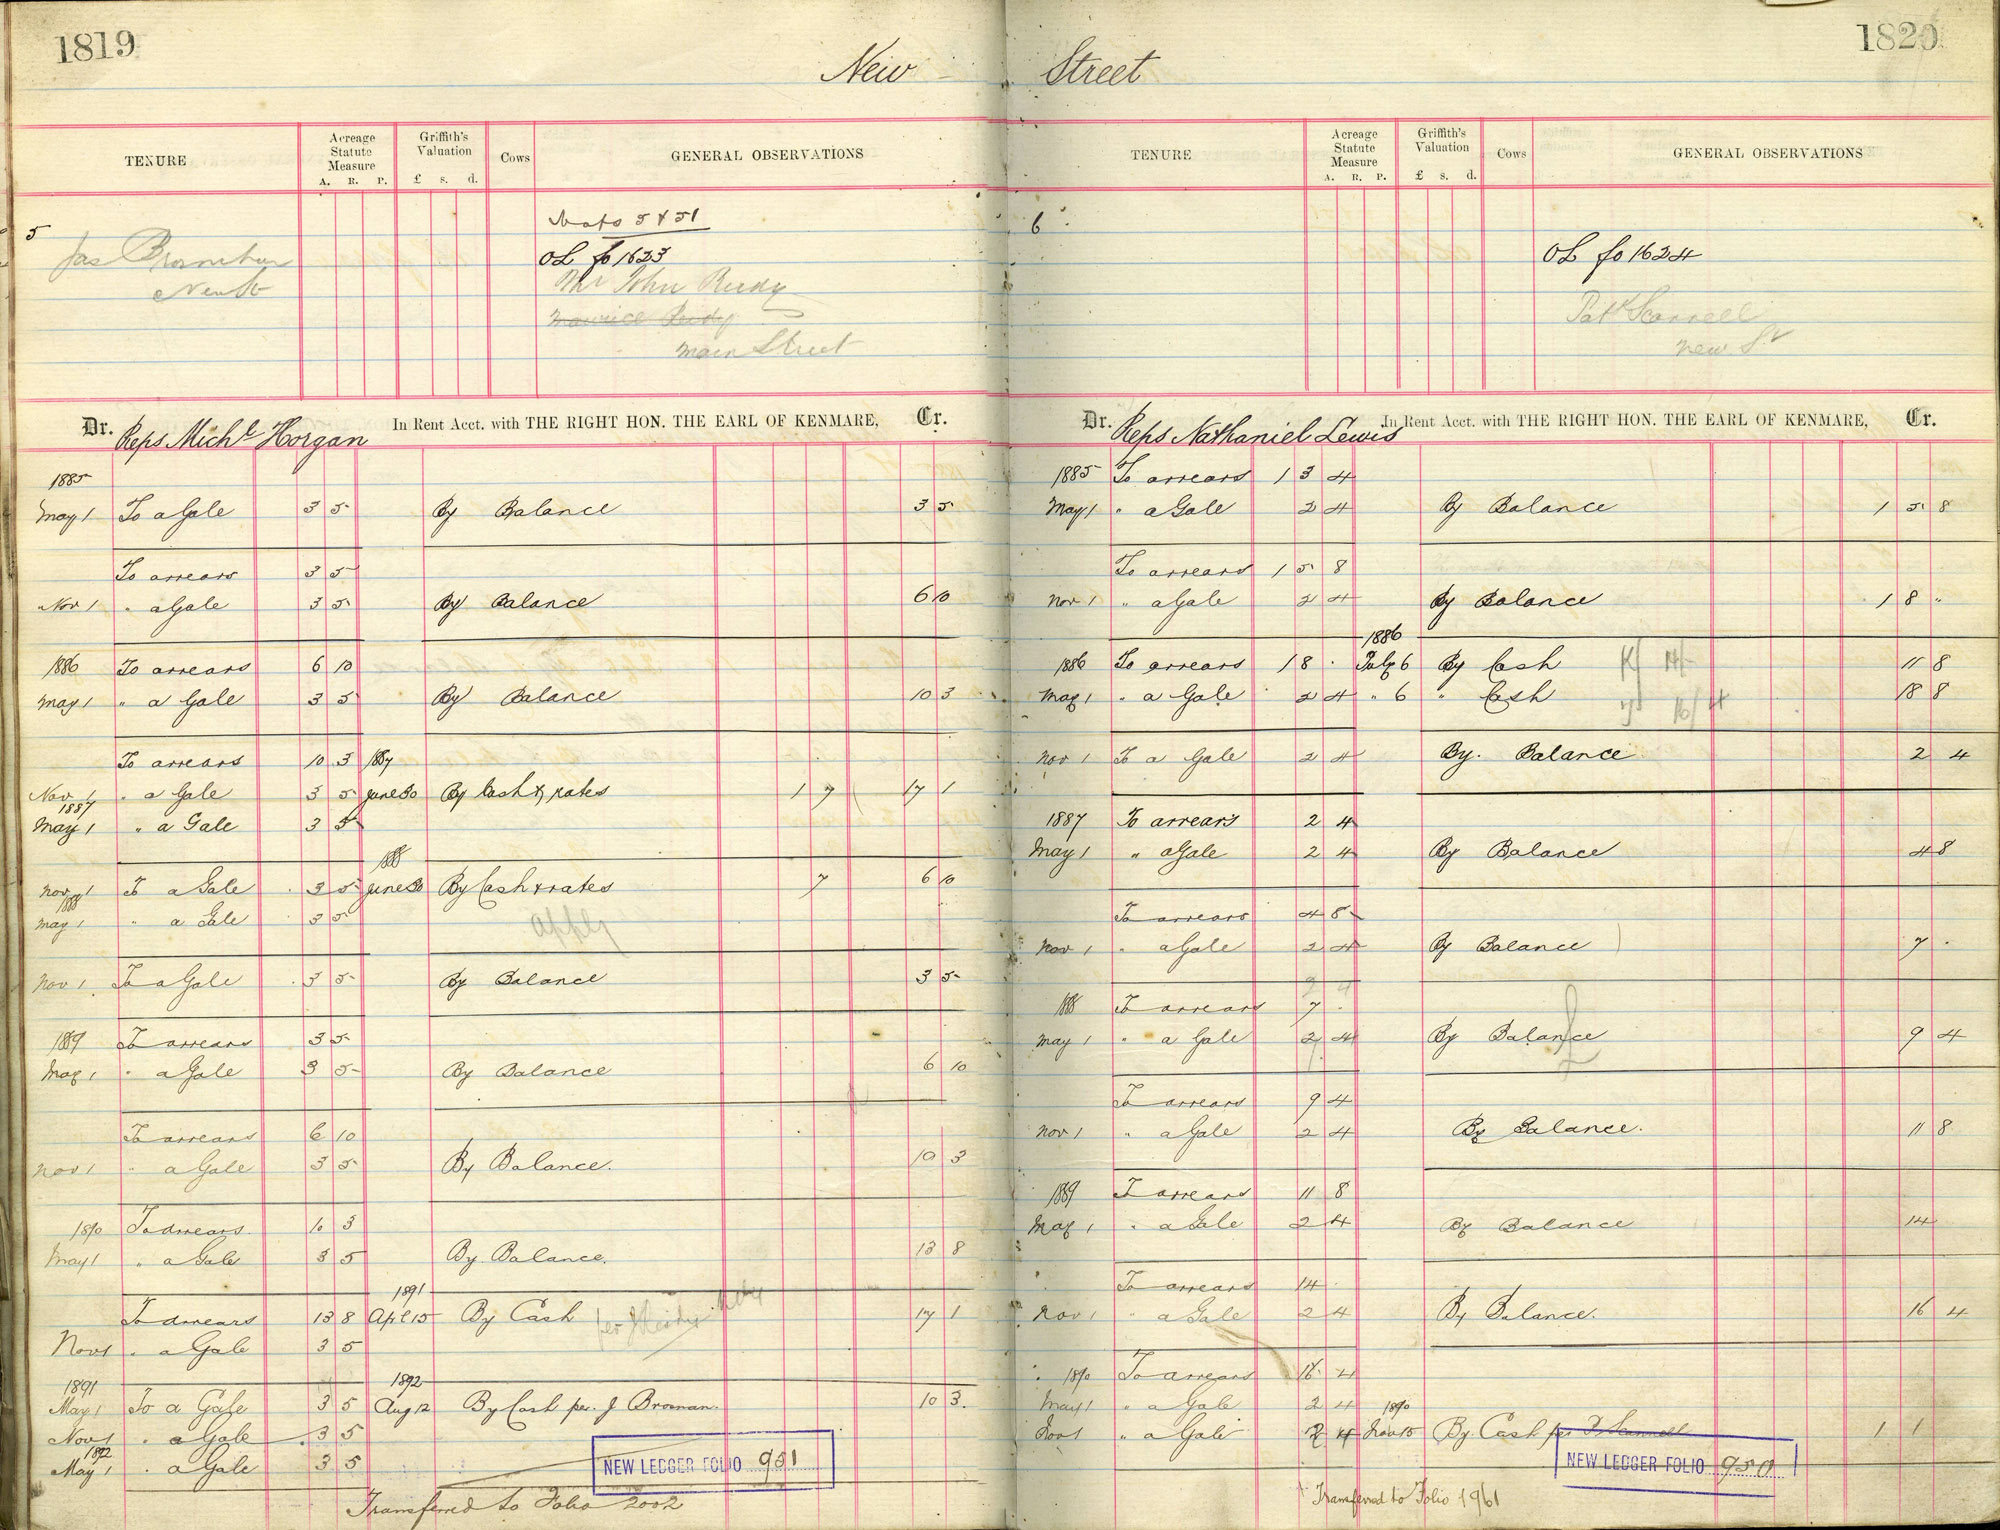 1819
New
TENURE
Acreage Statute Measure
A. R. P.
Griffith's Valuation
£ s. d.
Cows
GENERAL OBSERVATIONS
5
Jas Brosnihan
New St
5 & 51
OL fo 1623
Mr John Reidy
Maurice Reidy
Main Street
Dr. Reps Michl Horgan In Rent Acct. with THE RIGHT HON. THE EARL OF KENMARE, Cr.
1885
May 1 To a Gale 3 5 By Balance 3 5
To arrears 3 5
Nov 1 " a Gale 3 5 By Balance 6 10
1886 To arrears 6 10
May 1 " a Gale 3 5 By Balance 10 3
To arrears 10 3 1887
Nov 1 " a Gale 3 5 June 30 By Cash & rates 1 7 17 1
1887
May 1 " a Gale 3 5
1888
Nov 1 To a Gale 3 5 June 30 By Cash & rates 7 6 10
1888
May 1 " a Gale 3 5 apply
Nov 1 To a Gale 3 5 By Balance 3 5
1889 To arrears 3 5
May 1 " a Gale 3 5 By Balance 6 10
To arrears 6 10
Nov 1 " a Gale 3 5 By Balance. 10 3
1890 To arrears 10 3
May 1 " a Gale 3 5 By Balance. 13 8
1891
To arrears 13 8 Apl 15 By Cash per J Reidy 17 1
Nov 1 " a Gale 3 5
1891 1892
May 1 To a Gale 3 5 Aug 12 By Cash per. J Brosnan. 10 3.
Nov 1 " a Gale 3 5
1892
May 1 " a Gale 3 5
NEW LEDGER FOLIO 951
Transferred to Folio 2002
1820
Street
TENURE
Acreage Statute Measure
A. R. P.
Griffith's Valuation
£ s. d.
Cows
GENERAL OBSERVATIONS
6
OL fo 1624
Patk Scannell
New St
Dr. Reps Nathaniel Lewis In Rent Acct. with THE RIGHT HON. THE EARL OF KENMARE, Cr.
1885 To arrears 1 3 4
May 1 " a Gale 2 4 By Balance 1 5 8
To arrears 1 5 8
Nov 1 " a Gale 2 4 By Balance 1 8 "
1886
1886 To arrears 1 8 . July 6 By Cash 11 8
May 1 " a Gale 2 4 " 6 " Cash 16/4 18 8
Nov 1 To a Gale 2 4 By. Balance 2 4
1887 To arrears 2 4
May 1 " a Gale 2 4 By Balance 4 8
To arrears 4 8
Nov 1 " a Gale 2 4 By Balance 7 .
1888 To arrears 7 .
May 1 " a Gale 2 4 By Balance 9 4
To arrears 9 4
Nov 1 " a Gale 2 4 By Balance. 11 8
1889 To arrears 11 8
May 1 " a Gale 2 4 By Balance 14
To arrears 14
Nov 1 " a Gale 2 4 By Balance. 16 4
1890 To arrears 16 4
May 1 " a Gale 2 4 1890
Nov 1 " a Gale 2 4 Nov 15 By Cash per P. Scannell 1 1
NEW LEDGER FOLIO 950
Transferred to Folio 1961